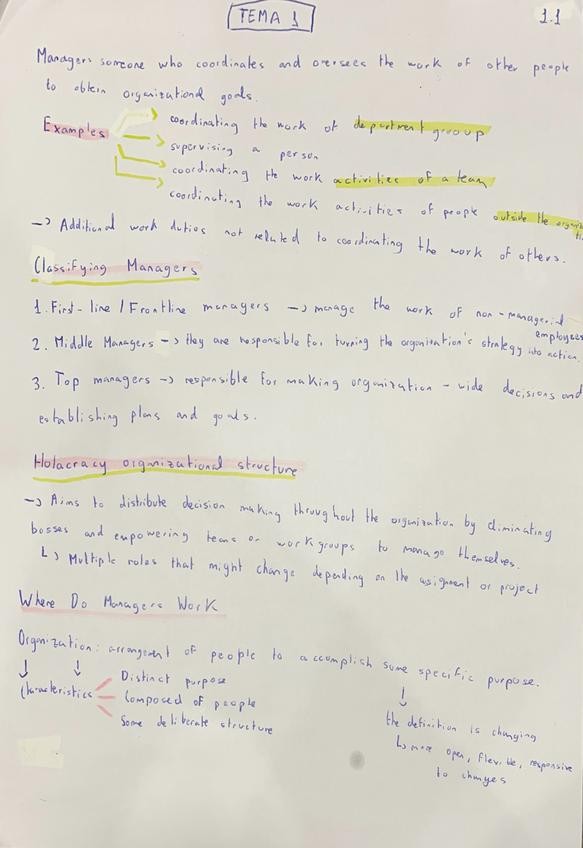 TEMA 1
1.1
Managers someone who coordinates and oversees the work of other people
to obtein organizational goals.
Examples
coordinating the work of department group
supervising a person
coordinating the work activities of a team
coordinating the work activities of people outside the organiza
tion
-> Additional work duties not related to coordinating the work of others.
Classifying Managers
1. First-line / Frontline managers -> manage the work of non-managerial
employees
2. Middle Managers -> they are responsible for turning the organization's strategy into action.
3. Top managers -> responsible for making organization-wide decisions and
establishing plans and goals.
Holacracy organizational structure
-> Aims to distribute decision making throughout the organization by eliminating
bosses and empowering teams or workgroups to manage themselves.
↳ Multiple roles that might change depending on the assignment or project
Where Do Managers Work
Organization: arrangement of people to accomplish some specific purpose.
↓ ↓ ↓
Characteristics
Distinct purpose
Composed of people
Some deliberate structure
the definition is changing
↳ more open, flexible, responsive
to changes